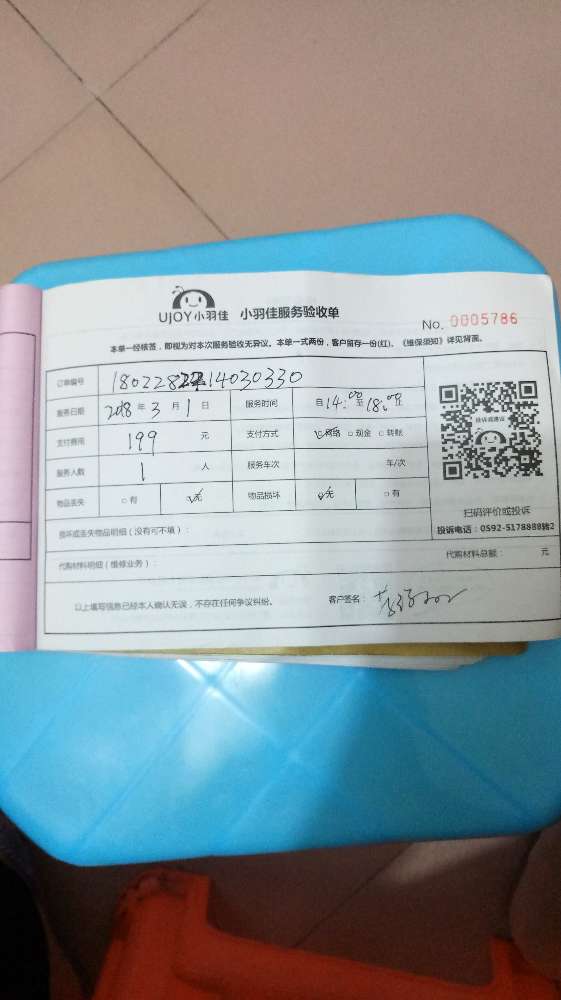 UjOY小羽佳 小羽佳服务验收单
No. 0005786
本单一经核签，即视为对本次服务验收无异议。本单一式两份，客户留存一份(红)，《维保须知》详见背面。
订单编号 14030330
服务日期 2018年3月1日 服务时间 自14:00至18:00止
支付费用 199 元 支付方式 网络 现金 转账
服务人数 1 人 服务车次 车/次
物品丢失 有 无 物品损坏 无 有
扫码评价或投诉
投诉电话：0592-5178888转2
损坏或丢失物品明细（没有可不填）：
代购材料明细（维修业务）： 代购材料总额： 元
以上填写信息已经本人确认无误，不存在任何争议纠纷。 客户签名：